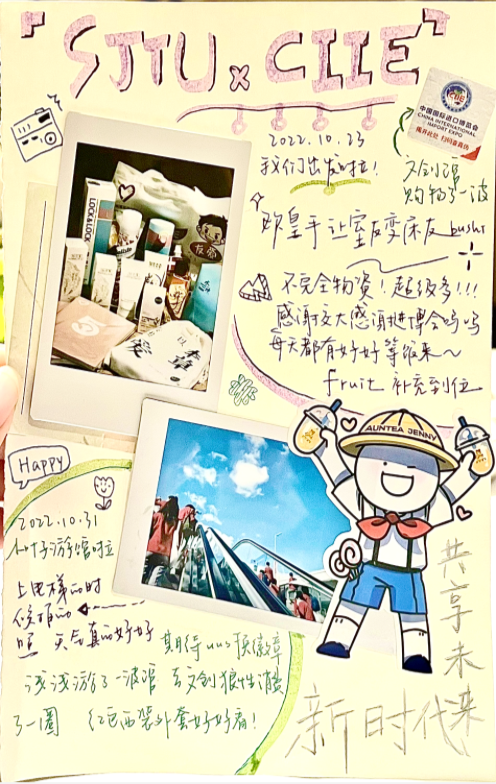 "SJTU x CIIE"
CIIE
中国国际进口博览会
CHINA INTERNATIONAL
IMPORT EXPO
2022.10.23
我们出发啦!
文创店
购物了一波
欧皇手让室友变床友 bushi
不完全物资!超级多!!!
感谢交大感谢进博会呜呜
每天都有好好等饭来~
fruit 补充到位
LOCK&LOCK
友常
AUNTEA JENNY
Happy
2022.10.31
小叶子游馆啦
上电梯的时
候拍的
照 天气真的好好
期待 uu 预徽章
浅浅游了一波馆 去文创狠性消费
了一圈 红色西装外套好好看!
共享未来
新时代